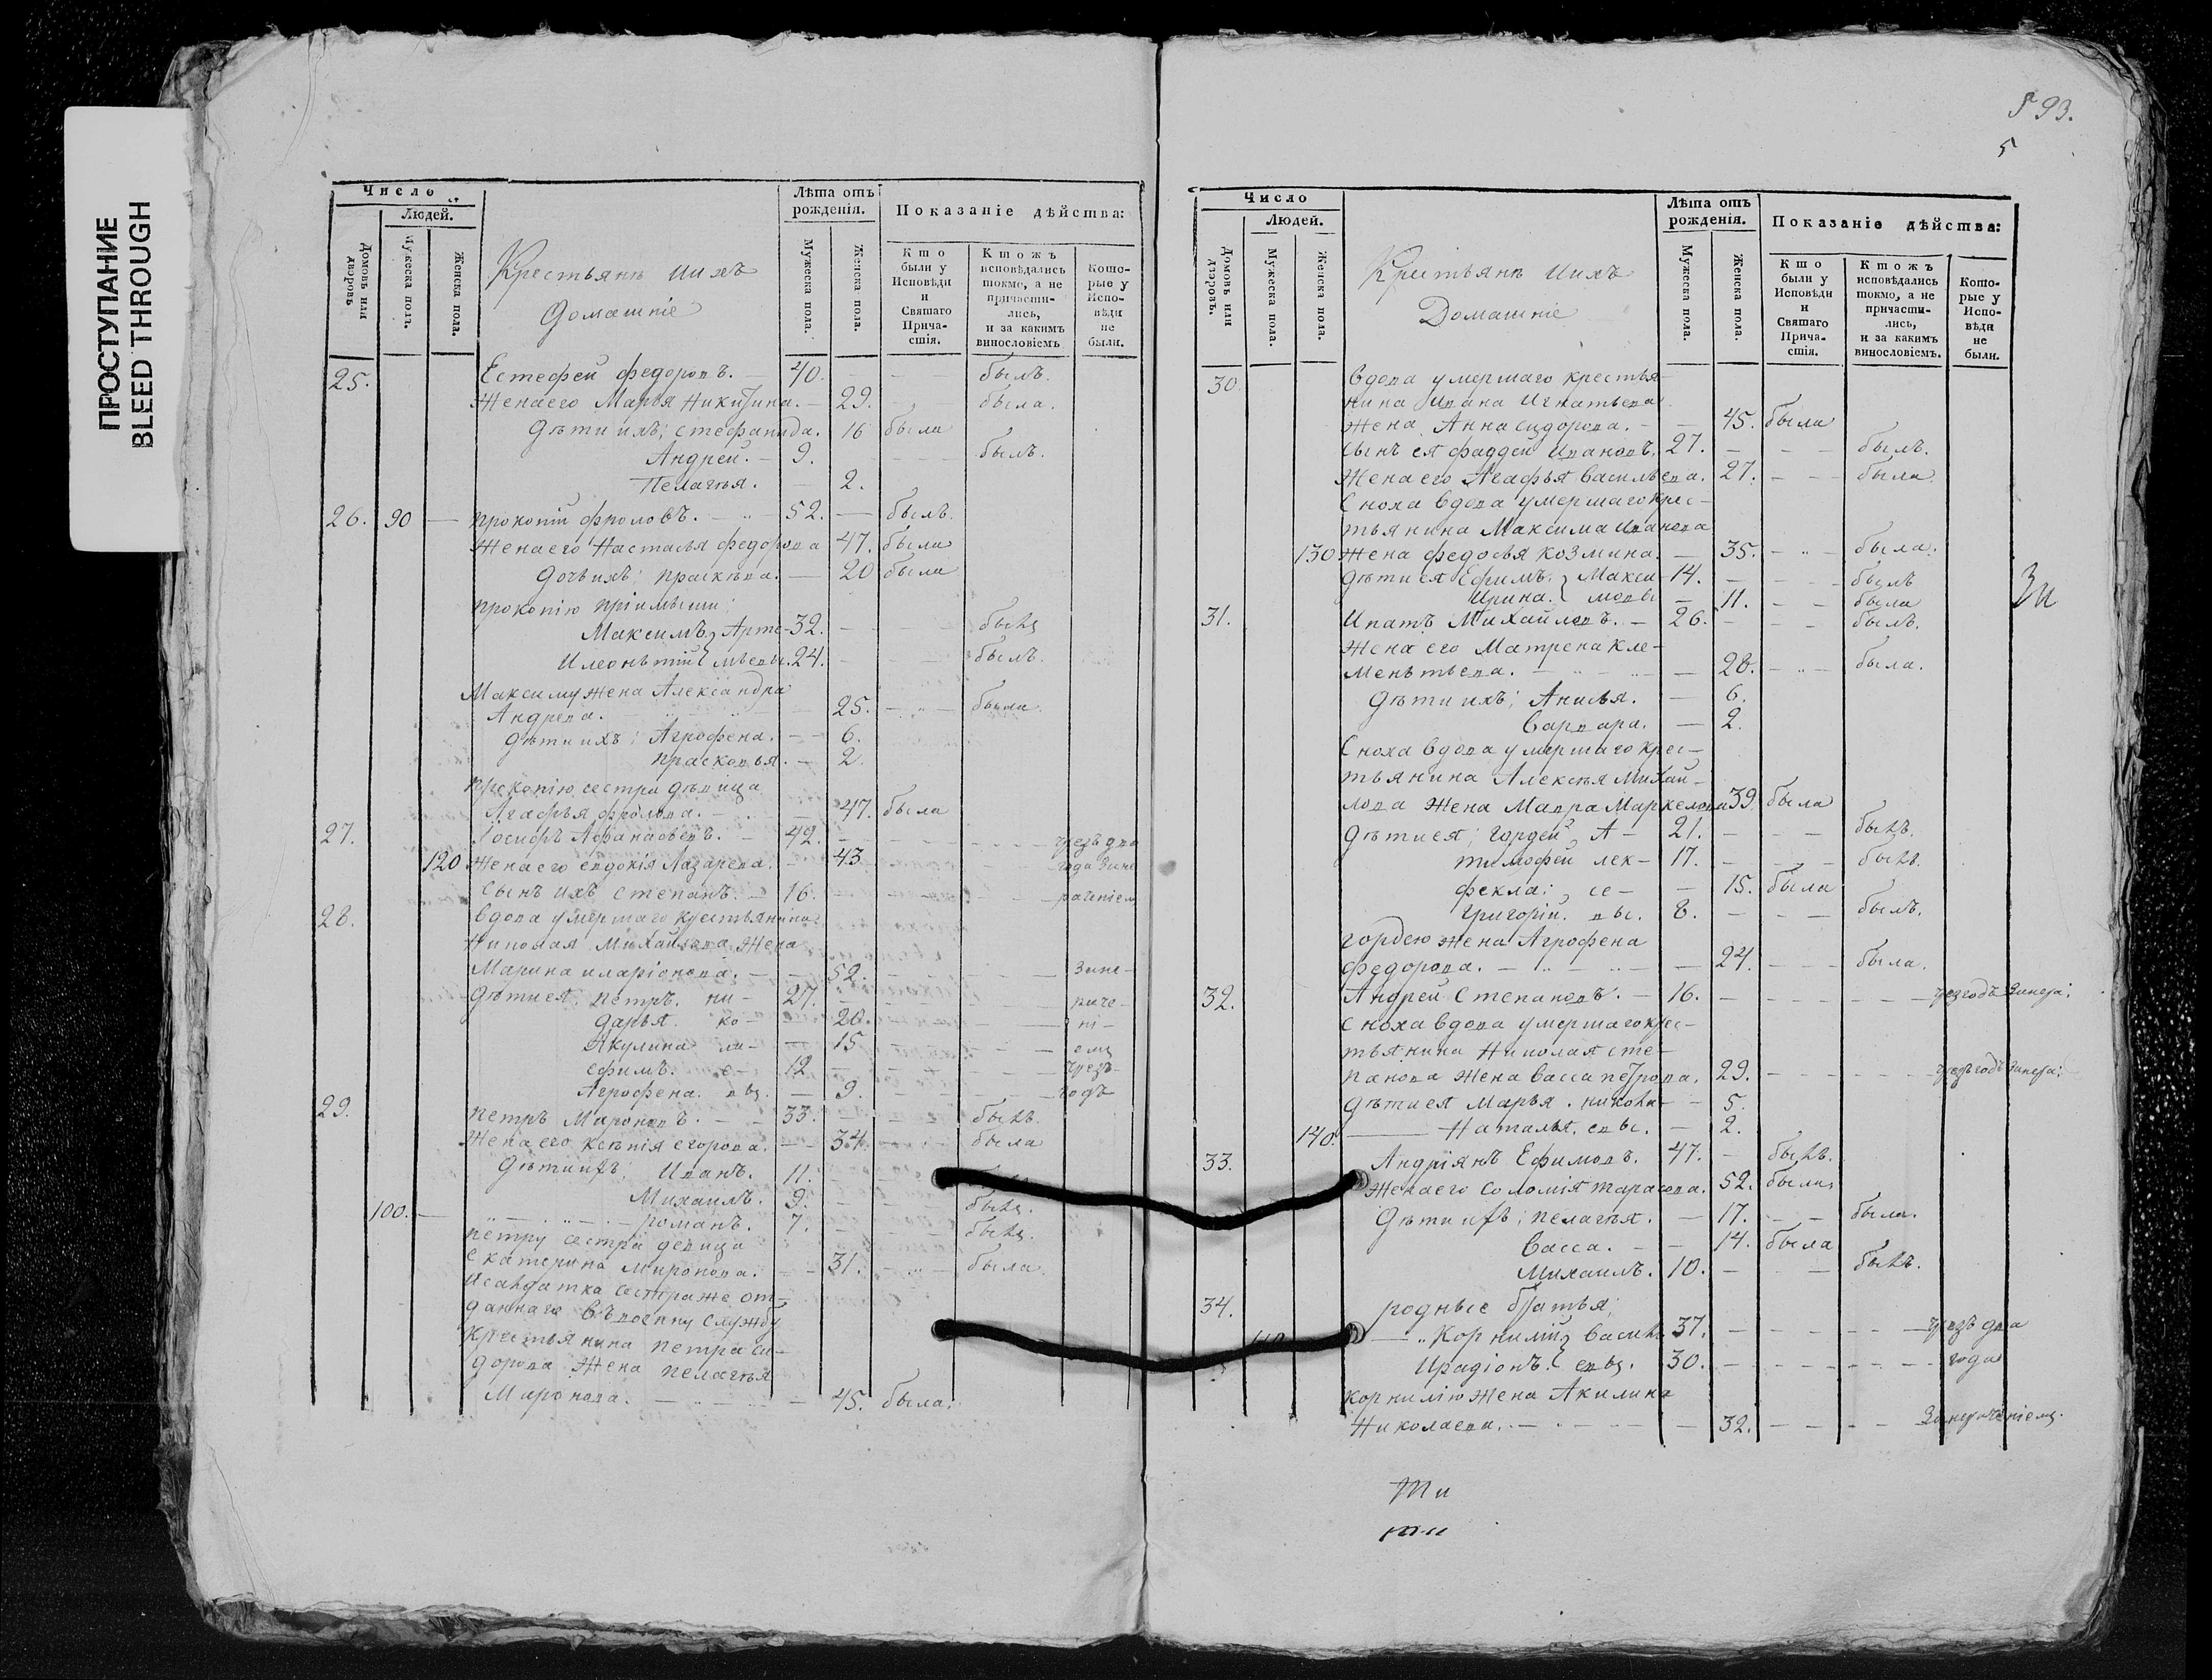 ПРОСТУПАНИЕ
BLEED THROUGH
Число
Людей.
Домовъ или дворовъ
Мужеска полъ.
Женска пола.
Крестьянѣ ихъ
домашніе
Лѣта отъ рожденія.
Мужеска пола.
Женска пола.
Показаніе дѣйства:
Кто были у Исповѣди и Святаго Причастія.
Ктожъ исповѣдались токмо, а не причастились, и за какимъ винословіемъ
Которые у Исповѣди не были.
25. Естефей федоровъ. 40. — былъ.
Жена его Марья Никитина. — 29. — была.
Дѣти ихъ; Стефанида. 16 была
Андрей. — 9. — былъ.
Пелагея. — 2.
26. 90 — Прокопій фроловъ. — 52. — былъ.
Жена его Настасья федорова 47. была
дочь ихъ; праскева. — 20 была
прокопію пріимыши:
Максимъ Арте- 32. — былъ
и леонътій мьевы. 24. — былъ.
Максиму жена Александра
Андрева. — 25. — была
дѣти ихъ; Агрофена. — 6.
прасковья. — 2.
Прокопію сестра дѣвица
Агафья фролова. — 47. была
27. Іосифъ Афанасовевъ. — 42. — чрезъ два
120 Жена его евдокія Лазарева. — 43 — года Зане
Сынъ ихъ степанъ. — 16. — раченіем
28. Вдова умершаго крестьянина
Николая Михайлова Жена
Марина иларіонова. — 52. — Зане-
дѣти ея. петръ. ни- 27. — раче-
дарья. ко- 20. — ні-
Акулина ла- — 15 — емъ
ефимъ. е- 12 — чрезъ
Агрофена. вы. — 9. — годъ
29. петръ Мироновъ. — 33. — былъ.
Жена его ксѣнія егорова. — 34. — была
Дѣти ихъ; Иванъ. 11.
Михаилъ. 9. — былъ.
100. — романъ. 7. — былъ.
петру сестра девица
Екатерина Миронова. — 31. — была.
и салдатка сестра же от-
даннаго въ военну службу
Крестьянина петра си-
дорова Жена пелагея
Миронова. — 45. была.
593.
5
Число
Людей.
Домовъ или дворовъ.
Мужеска пола.
Женска пола.
Крестьянѣ ихъ
Домашніе
Лѣта отъ рожденія.
Мужеска пола.
Женска пола.
Показаніе дѣйства:
Кто были у Исповѣди и Святаго Причастія.
Ктожъ исповѣдались токмо, а не причастились, и за какимъ винословіемъ.
Которые у Исповѣди не были.
30. вдова умершаго крестья-
нина Ивана Игнатьева
жена Анна сидорова. — 45. была
Сынъ ея фаддей Ивановъ. 27. — былъ.
Жена его Агафья Васильева. 27. — была
Сноха вдова умершаго крес-
тьянина Максима Иванова
130 жена федосья козмина. — 35. — была.
дѣти ея Ефимъ. Макси- 14. — былъ
Ирина. мовы — 11. — была
Зи
31. Ипатъ Михайловъ. — 26. — былъ.
жена его Матрена кле-
менътьева. — 28. — была.
Дѣти ихъ; Анисья. — 6.
Варвара. — 2.
Сноха вдова умершаго крес-
тьянина Алексѣя Михай-
лова жена Мавра Маркелова 39. была
дѣти ея; гордей А- 21. — былъ.
тимофей лек- 17. — былъ.
фекла; се- — 15. была
григорій. вы. 8. — былъ.
гордею жена Агрофена
федорова. — 24. — была.
32. Андрей Степановъ. — 16. — чрезгодъ Занера:
Сноха вдова умершаго крес-
тьянина Николая сте-
панова жена Васса петрова. 29. — чрезъ годъ Занера:
дѣти ея Марья. никола- — 5.
140. — Наталья. евы. — 2.
33. Андріянъ Ефимовъ. 47. — былъ.
Жена его соломія тарасева. 52. была
Дѣти ихъ; пелагея. — 17. — была.
Васса. — 14. была
Михаилъ. 10. — былъ.
34. родные братья;
Корнилій Василь- 37. — чрезъ два
Ирадіонъ. евы. 30. — года
корнилію жена Акилина
Николаева. — 32. — Занераченіемъ.
Ти
ти